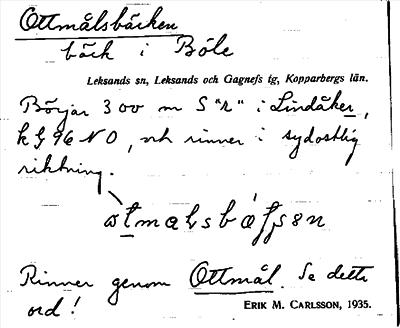 Ottmålsbäcken
bäck i Böle
Leksands sn, Leksands och Gagnefs tg, Kopparbergs län.
Börjar 300 m S "r" i Lindåker,
k G 96 NO, och rinner i sydostlig
riktning.
Rinner genom Ottmål. Se detta
ord!
ERIK M. CARLSSON, 1935.